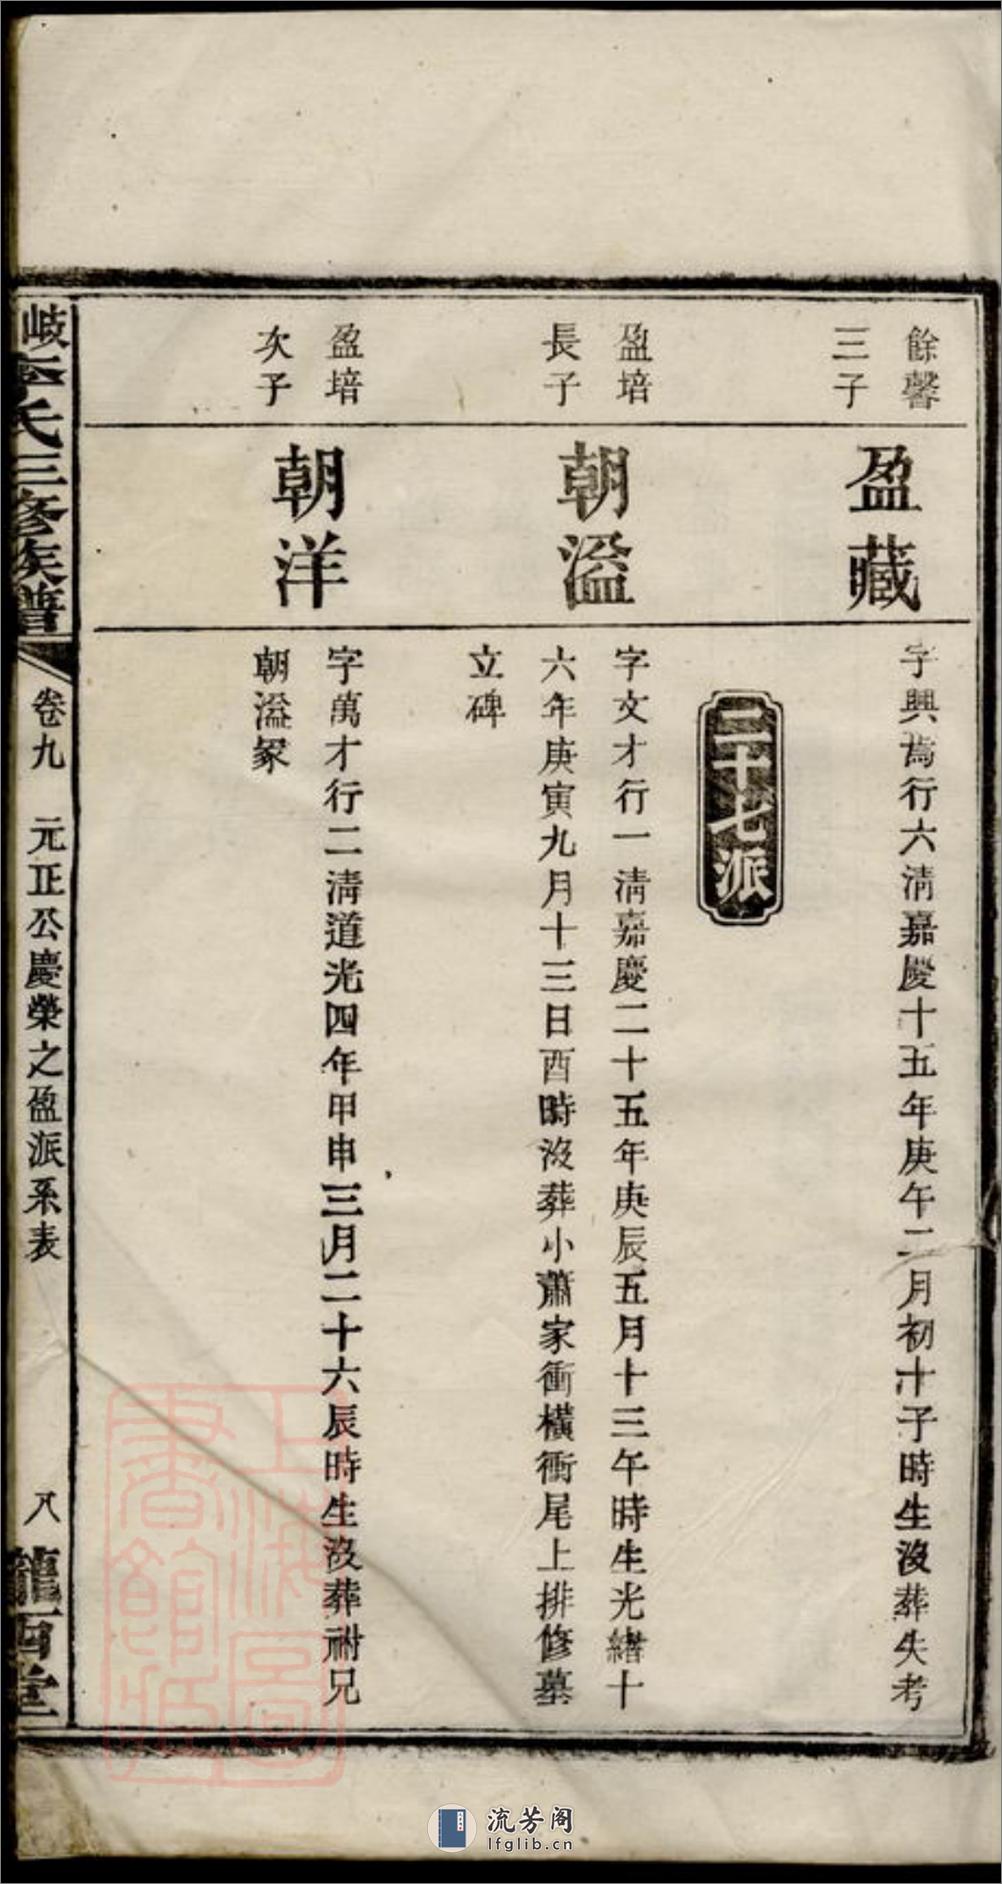 餘馨
三子
盈藏
字興蒍行六清嘉慶十五年庚午二月初十子時生沒葬失考
二十七派
盈培
長子
朝溢
字文才行一清嘉慶二十五年庚辰五月十三午時生光緒十
六年庚寅九月十三日酉時沒葬小蕭家衝橫衝尾上排修墓
立碑
盈培
次子
朝洋
字萬才行二清道光四年甲申三月二十六辰時生沒葬祔兄
朝溢冢
岐李氏三修族譜
卷九 元正公慶榮之盈派系表
八 隴西堂
上海圖書館藏
流芳阁
lfglib.cn